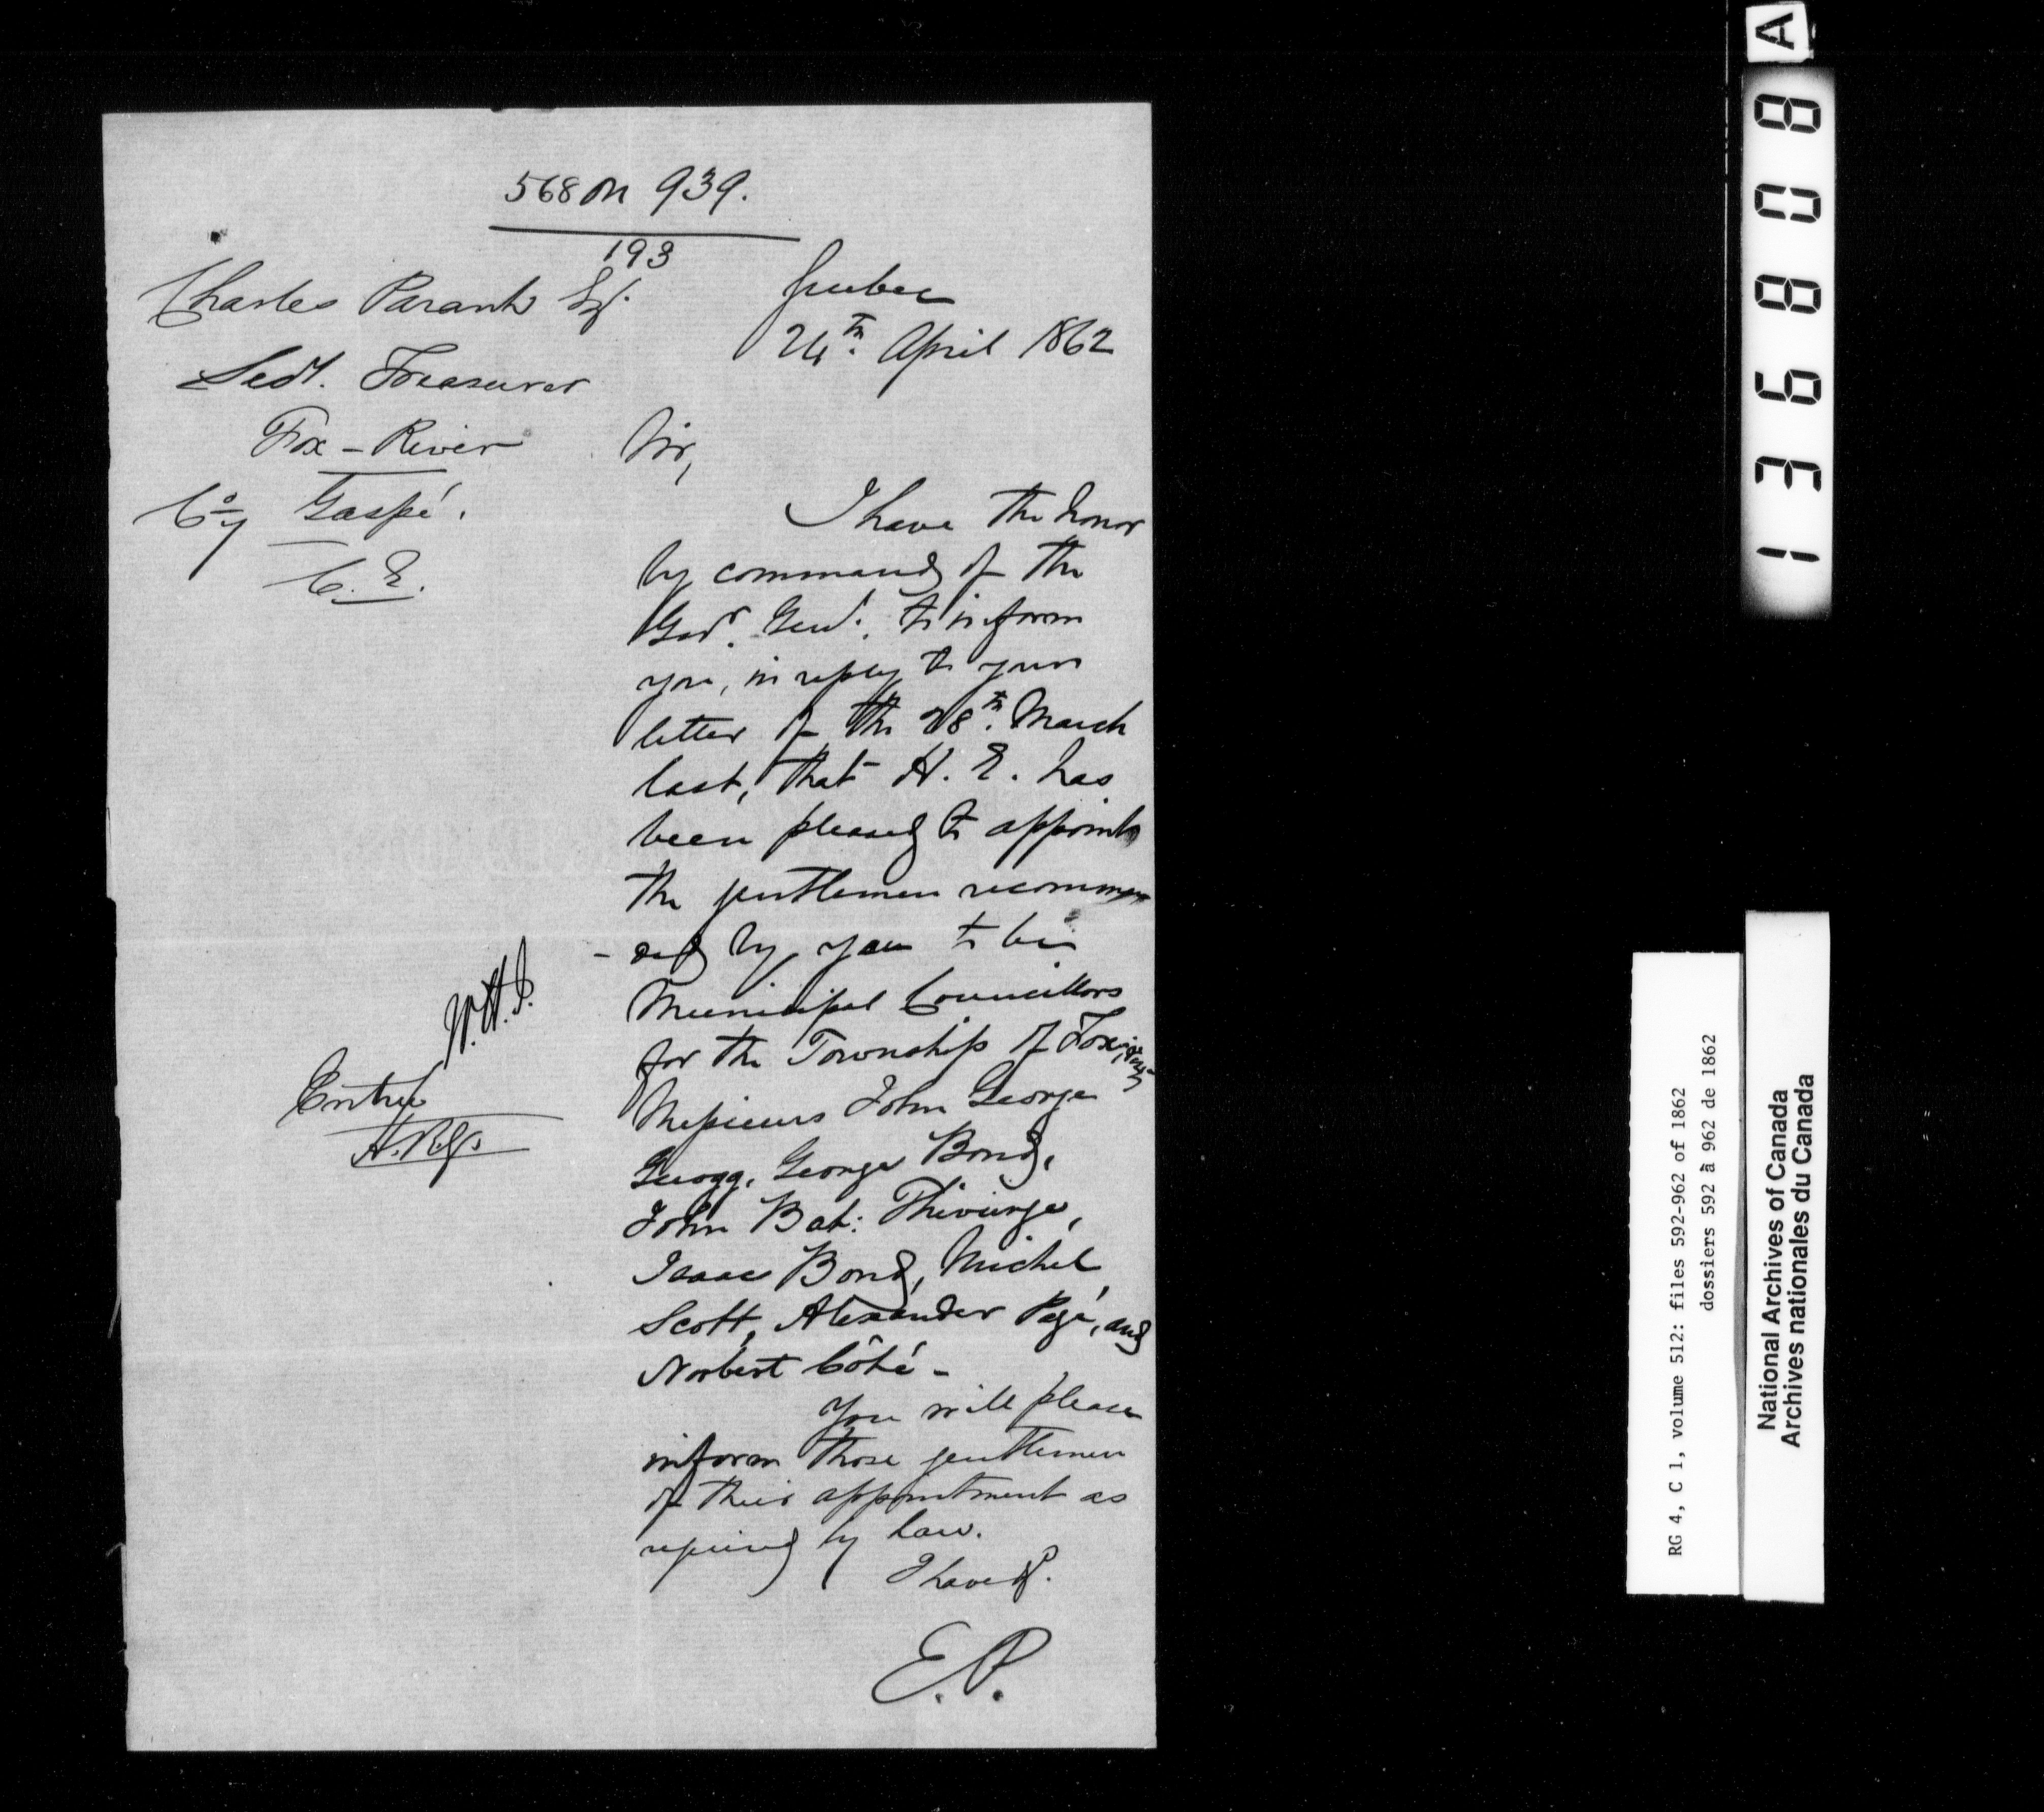 568 on 939.
193
Charles Parant Esq.
Secy. Treasurer
Fox - River
Coy Gaspé.
C. E.
Quebec
24th. April 1862
Sir,
I have the honor
by command of the
Govr. Genl. to inform
you, in reply to your
letter of the 28th. March
last, that H. E. has
been pleased to appoint
the gentlemen recommen
- ded by you to be
Municipal Councillors
for the Township of Fox
Messieurs John George
George Bond,
John Bat: Thivierge,
Isaac Bond, Michel
Scott, Alexander Pagé, and
Norbert Côté -
You will please
inform those gentlemen
of their appointment as
required by law.
I have &.
E.P.
Entred
A
1 3 6 8 0 8
RG 4, C 1, volume 512: files 592-962 of 1862
dossiers 592 à 962 de 1862
National Archives of Canada
Archives nationales du Canada